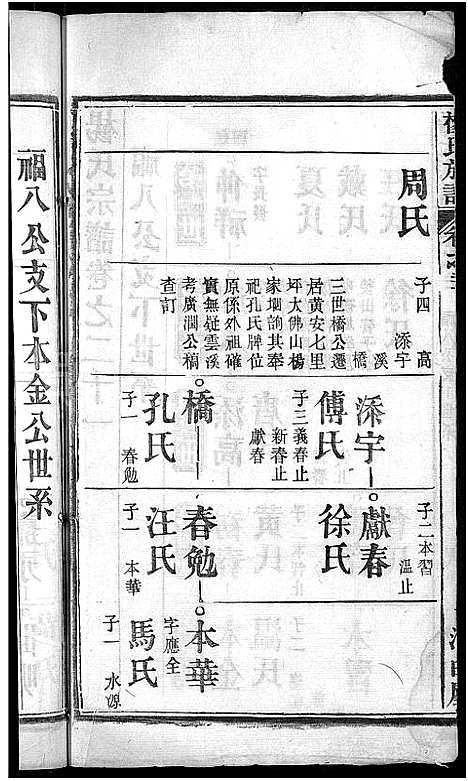 楊氏族譜
周氏
子四 高
添宇
溪
橋
三世橋公遷
居黄安七里
坪大佛山楊
家塆詢其奉
祀孔氏牌位
原係外祖確
實無疑雲溪
考廣潤公槁
查訂
添宇
傅氏
子三義春止
新春止
獻春
橋
孔氏
子一 春勉
子二本習
溫止
獻春
徐氏
春勉
汪氏
子一 本華
本華
字應全
馬氏
子一 水源
福八公支下本金公世系